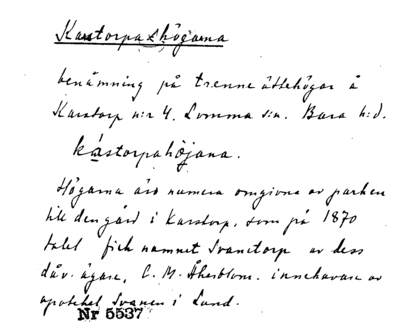 Karstorpashögarna
benämning på trenne ättehögar å
Karstorp n:r 4. Lomma s:n. Bara h:d.
kárstorpahöjana.
Högarna äro numera omgivna av parken
till den gård i Karstorp, som på 1870
talet fick namnet Svanetorp av dess
dåv. ägare, C. M. Åkerblom. innehavare av
apoteket Svanen i Lund.
Nr 5537